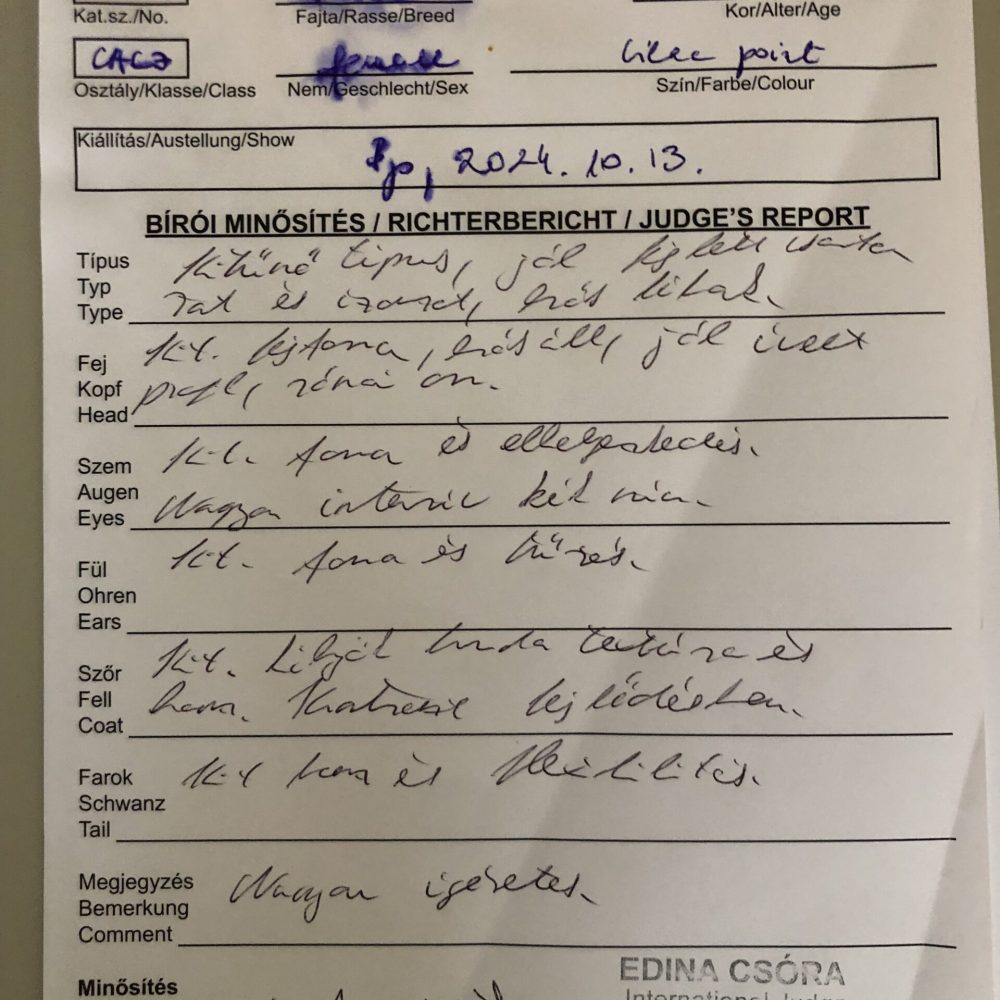 Kat.sz./No. Fajta/Rasse/Breed Kor/Alter/Age
CACJ female lilac point
Osztály/Klasse/Class Nem/Geschlecht/Sex Szín/Farbe/Colour
Kiállítás/Austellung/Show
Bp, 2024. 10. 13.
BÍRÓI MINŐSÍTÉS / RICHTERBERICHT / JUDGE'S REPORT
Típus
Typ
Type
Kitűnő típus, jól fejlett
és izomzat, erős lábak.
Fej
Kopf
Head
Kit. fejforma, erős áll, jól ívelt
profil, római orr.
Szem
Augen
Eyes
Kit. forma és elhelyezkedés.
Nagyon intenzív kék szín.
Fül
Ohren
Ears
Kit. forma és tűzés.
Szőr
Fell
Coat
Kit. bunda textúra és
fejlődésben.
Farok
Schwanz
Tail
Kit hossz és flexibilitás.
Megjegyzés
Bemerkung
Comment
Nagyon igéretes.
Minősítés
EDINA CSÓRA
International Judge